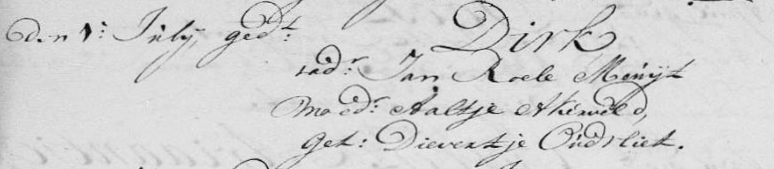 den 1: Julij, gedt: Dirk
vadr: Jan Roele Menijt
Moedr: Aaltje Akerveld,
Get: Dieventje Oudvliet.